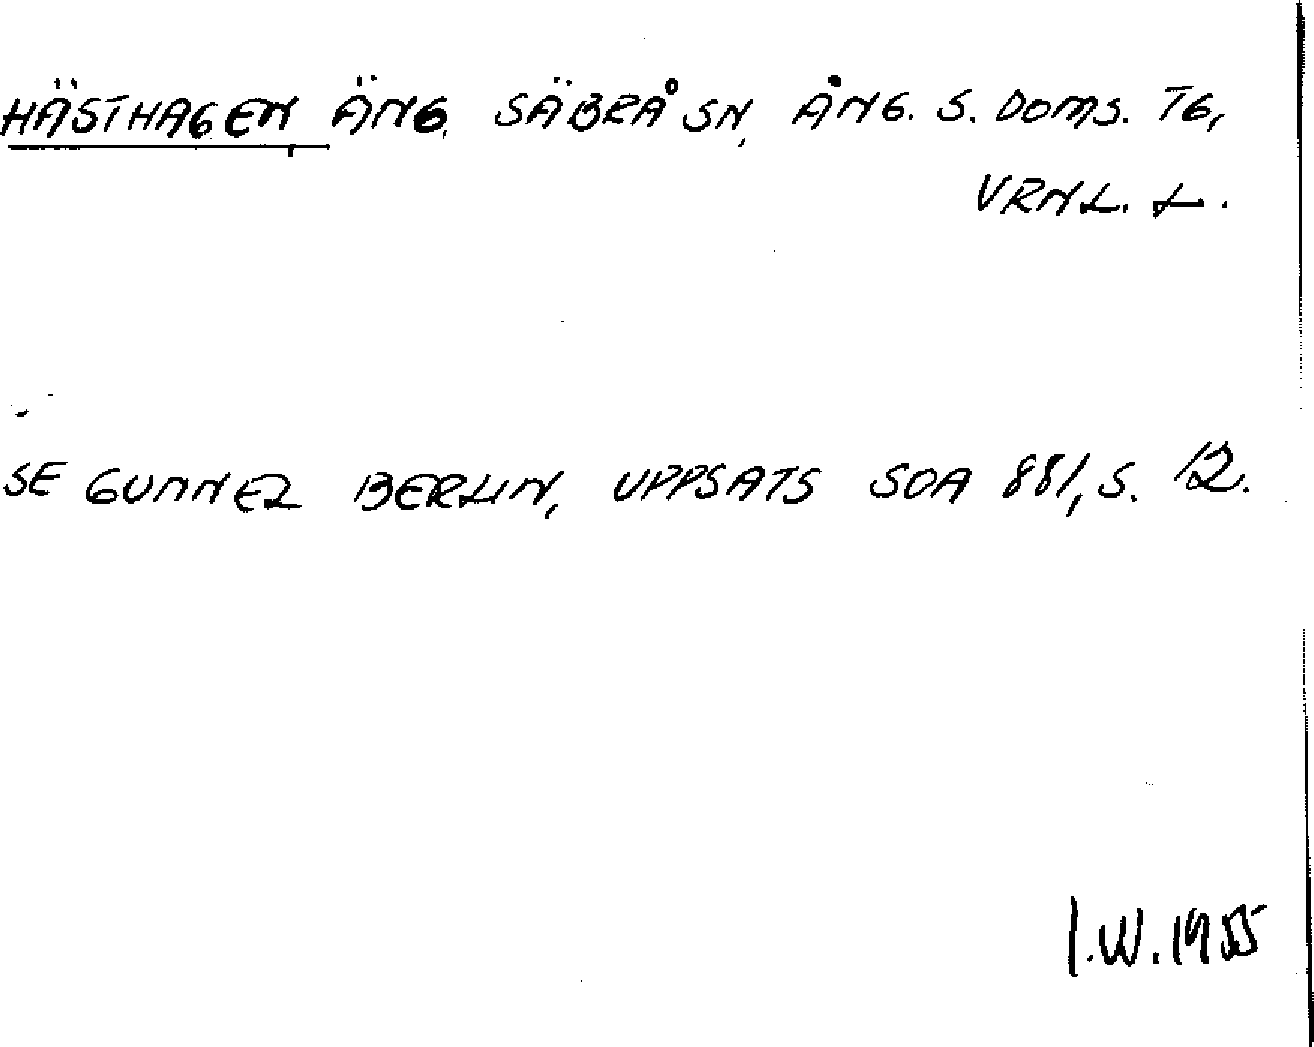 HÄSTHAGEN, ÄNG, SÄBRÅ SN, ÅNG. S. DOMS. TG,
VRNL. L.
SE GUNNEL BERLIN, UPPSATS SOA 881, S. 12.
I.W. 1955